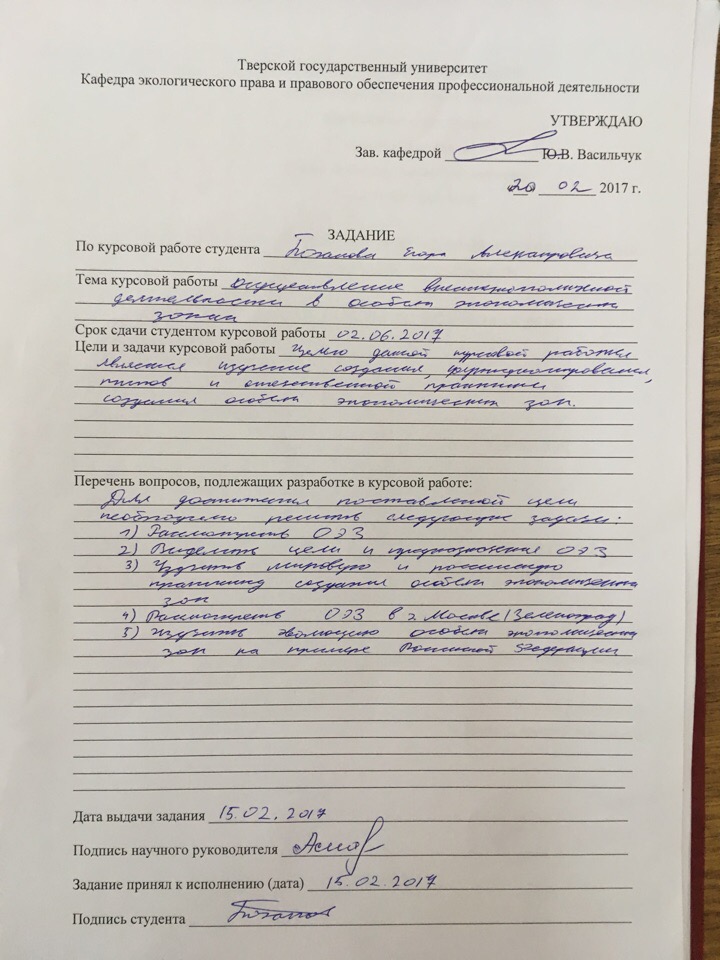 Тверской государственный университет
Кафедра экологического права и правового обеспечения профессиональной деятельности
УТВЕРЖДАЮ
Зав. кафедрой Ю.В. Васильчук
20 02 2017 г.
ЗАДАНИЕ
По курсовой работе студента Егора Александровича
Тема курсовой работы Осуществление внешнеэкономической
деятельности в особых экономических
зонах
Срок сдачи студентом курсовой работы 02.06.2017
Цели и задачи курсовой работы Целью данной курсовой работы
является изучение создания, функционирования,
типов и отечественной практики
создания особых экономических зон.
Перечень вопросов, подлежащих разработке в курсовой работе:
Для достижения поставленной цели
необходимо решить следующие задачи:
1) Рассмотреть ОЭЗ
2) Выделить цели и предназначения ОЭЗ
3) Изучить мировую и российскую
практику создания особых экономических
зон
4) Рассмотреть ОЭЗ в г. Москве (Зеленоград)
5) Изучить эволюцию особых экономических
зон на примере Российской Федерации
Дата выдачи задания 15.02.2017
Подпись научного руководителя
Задание принял к исполнению (дата) 15.02.2017
Подпись студента